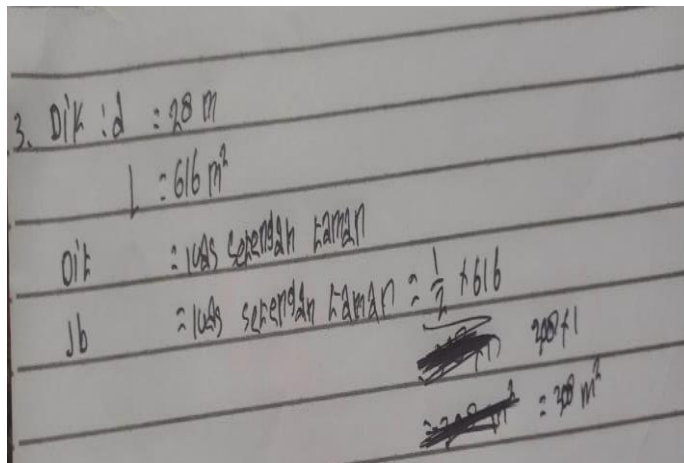 3. Dik : d = 28 m
L = 616 m²
Dit = luas setengah taman
Jb = luas setengah taman = 1/2 × 616
308 × 1
= 308 m²